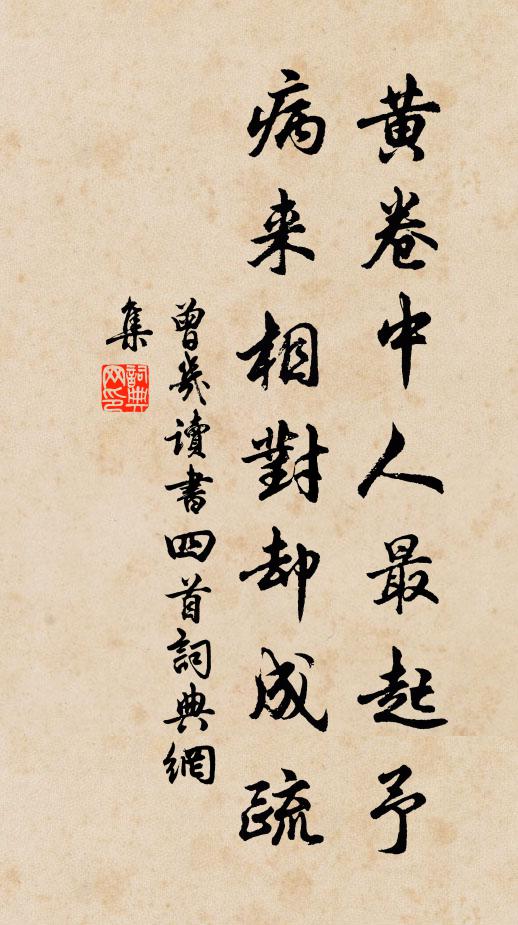 黄卷中人最起予
病来相對却成疏
曾幾讀書四首詞典網
集
詞典
网印